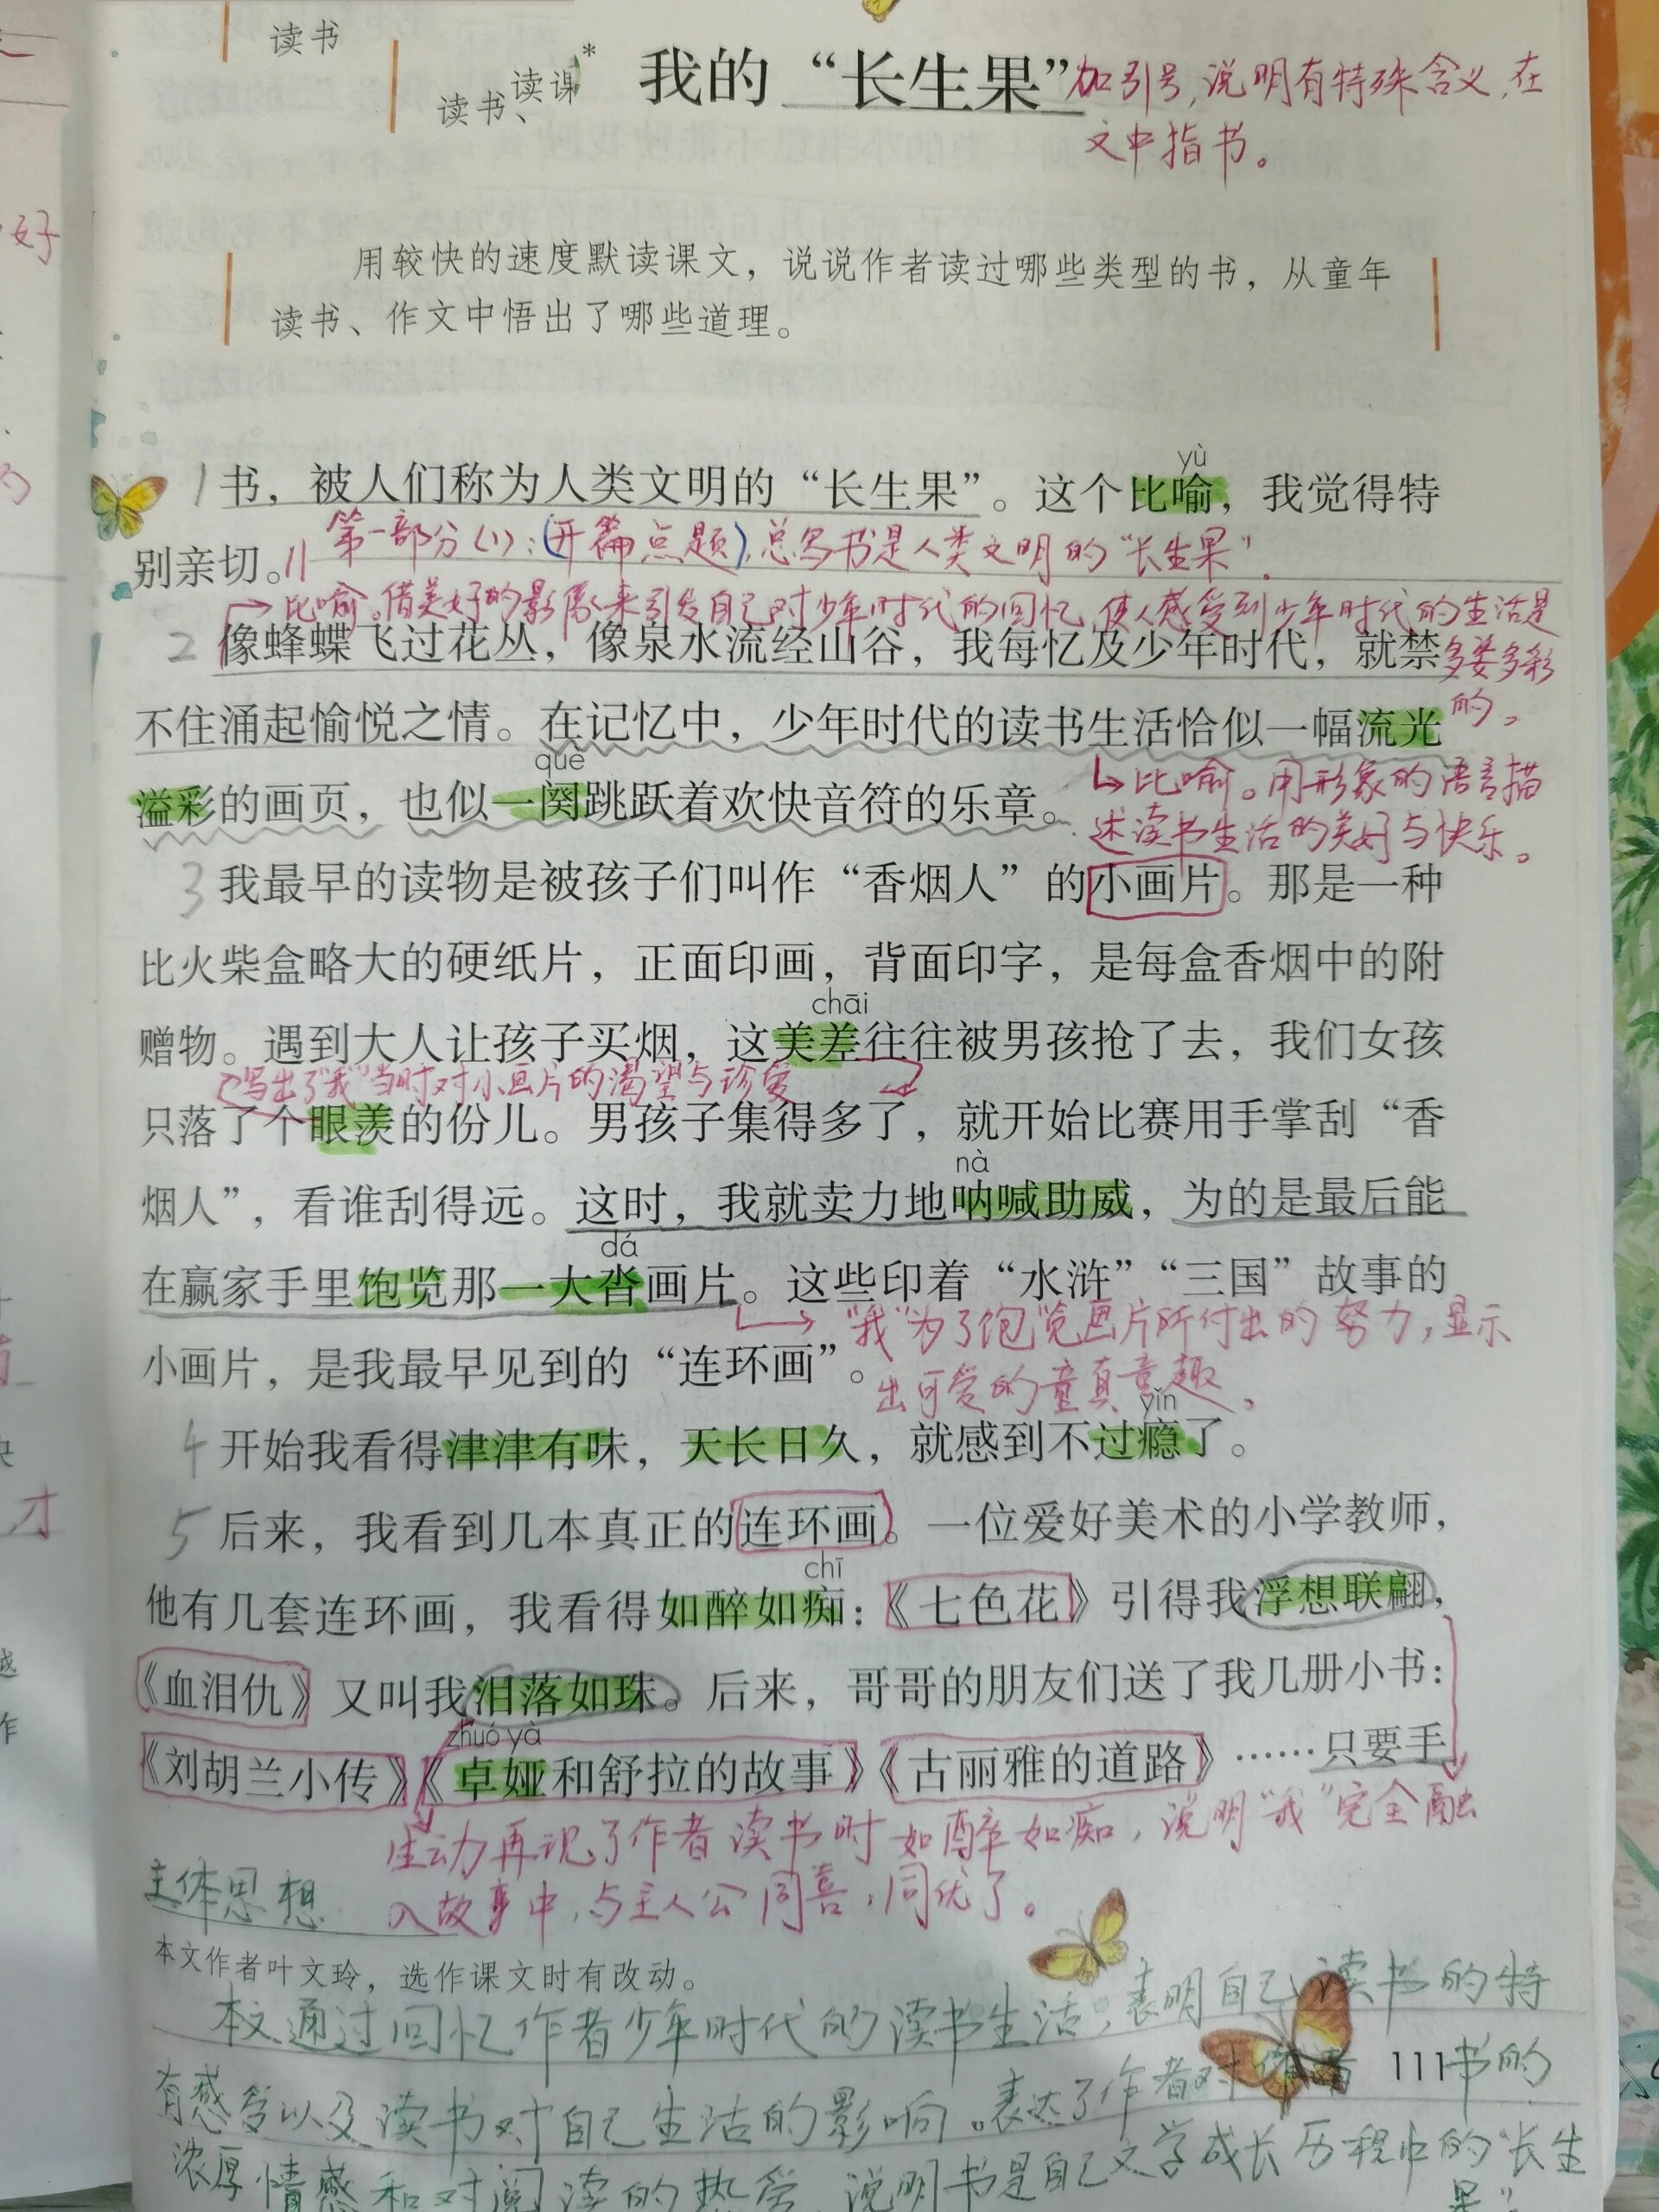 读书
读书、读课
* 我的“长生果”
加引号,说明有特殊含义,在
文中指书。
用较快的速度默读课文，说说作者读过哪些类型的书，从童年
读书、作文中悟出了哪些道理。
yù
1 书，被人们称为人类文明的“长生果”。这个比喻，我觉得特
第一部分(1):(开篇点题),总写书是人类文明的“长生果”.
别亲切。//
比喻。借美好的影像来引发自己对少年时代的回忆,使人感受到少年时代的生活是
多姿多彩
的。
2 像蜂蝶飞过花丛，像泉水流经山谷，我每忆及少年时代，就禁
不住涌起愉悦之情。在记忆中，少年时代的读书生活恰似一幅流光
què
溢彩的画页，也似一阕跳跃着欢快音符的乐章。
比喻。用形象的语言描
述读书生活的美好与快乐。
3 我最早的读物是被孩子们叫作“香烟人”的小画片。那是一种
比火柴盒略大的硬纸片，正面印画，背面印字，是每盒香烟中的附
chāi
赠物。遇到大人让孩子买烟，这美差往往被男孩抢了去，我们女孩
写出了“我”当时对小画片的渴望与珍爱
只落了个眼羡的份儿。男孩子集得多了，就开始比赛用手掌刮“香
nà
烟人”，看谁刮得远。这时，我就卖力地呐喊助威，为的是最后能
dá
在赢家手里饱览那一大沓画片。这些印着“水浒”“三国”故事的
“我”为了饱览画片所付出的努力,显示
出可爱的童真童趣。
小画片，是我最早见到的“连环画”。
yǐn
4 开始我看得津津有味，天长日久，就感到不过瘾了。
5 后来，我看到几本真正的连环画。一位爱好美术的小学教师，
chī
他有几套连环画，我看得如醉如痴：《七色花》引得我浮想联翩，
《血泪仇》又叫我泪落如珠。后来，哥哥的朋友们送了我几册小书：
zhuó yà
《刘胡兰小传》《卓娅和舒拉的故事》《古丽雅的道路》……只要手
生动再现了作者读书时如醉如痴,说明“我”完全融
入故事中,与主人公同喜,同忧了。
主体思想
本文作者叶文玲，选作课文时有改动。
本文通过回忆作者少年时代的读书生活,表明自己读书的特
有感受以及读书对自己生活的影响。表达了作者对 书的
111
浓厚情感和对阅读的热爱,说明书是自己文学成长历程中的“长生
果”
好
才